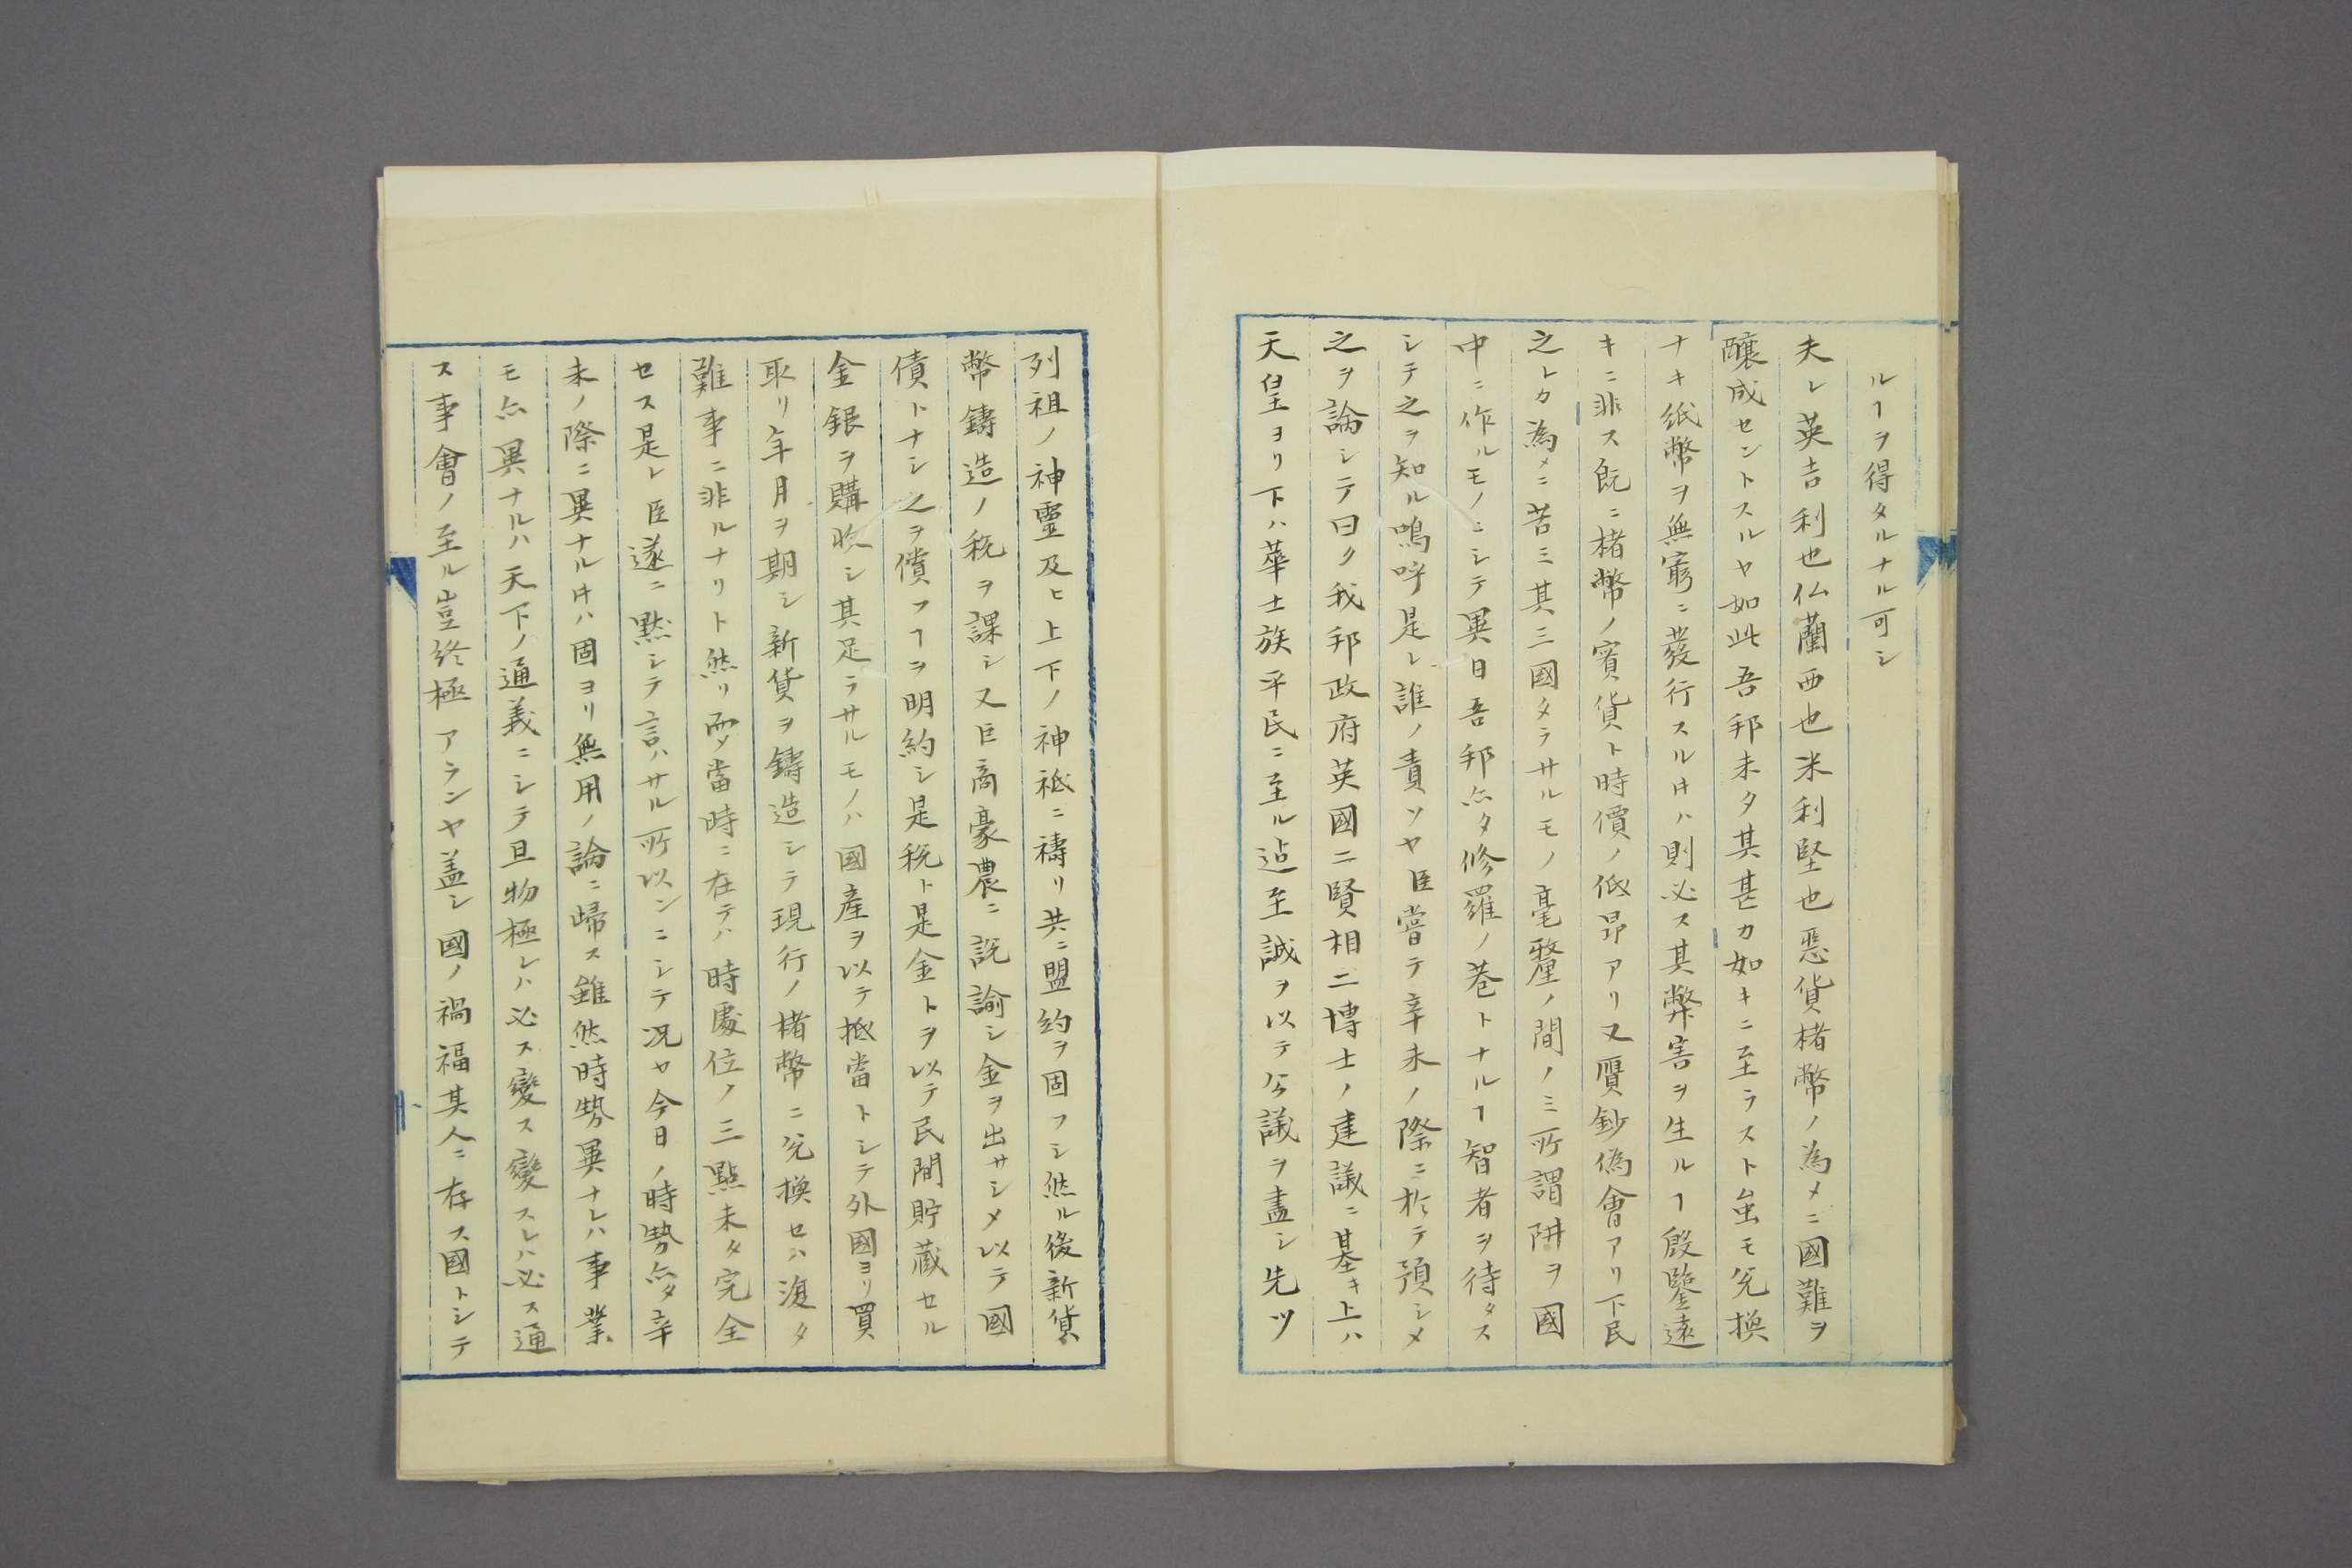 ルヿヲ得タルナル可シ
夫レ英吉利也仏蘭西也米利堅也悪貨楮幣ノ為メニ國難ヲ
醸成セントスルヤ如此吾邦未タ其甚カ如キニ至ラスト虽モ兌換
ナキ紙幣ヲ無窮ニ發行スル片ハ則必ス其弊害ヲ生ルヿ殷鑒遠
キニ非ス既ニ楮幣ノ寳貨ト時價ノ低昻アリ又贋鈔偽會アリ下民
之レカ為メニ苦ミ其三國タラサルモノ毫釐ノ間ノミ所謂阱ヲ國
中ニ作ルモノニシテ異日吾邦亦タ修羅ノ巷トナルヿ智者ヲ待タス
シテ之ヲ知ル鳴呼是レ誰ノ責ソヤ臣嘗テ辛未ノ際ニ於テ預シメ
之ヲ論シテ曰ク我邦政府英國二賢相二博士ノ建議ニ基キ上ハ
天皇ヨリ下ハ華士族平民ニ至ル迠至誠ヲ以テ公議ヲ盡シ先ツ
列祖ノ神靈及ヒ上下ノ神祇ニ禱リ共ニ盟約ヲ固フシ然ル後新貨
幣鑄造ノ税ヲ課シ又巨商豪農ニ説諭シ金ヲ出サシメ以テ國
債トナシ之ヲ償フヿヲ明約シ是税ト是金トヲ以テ民間貯蔵セル
金銀ヲ購收シ其足ラサルモノハ國産ヲ以テ抵當トシテ外國ヨリ買
取リ年月ヲ期シ新貨ヲ鑄造シテ現行ノ楮幣ニ兌換セハ復タ
難事ニ非ルナリト然リ而〆當時ニ在テハ時處位ノ三點未タ完全
セス是レ臣遂ニ黙シテ言ハサル所以ンニシテ况ヤ今日ノ時勢亦タ辛
未ノ際ニ異ナル片ハ固ヨリ無用ノ論ニ歸ス雖然時勢異ナレハ事業
モ亦異ナルハ天下ノ通義ニシテ且物極レハ必ス變ス變スレハ必ス通
ス事會ノ至ル豈終極アランヤ盖シ國ノ禍福其人ニ存ス國トシテ